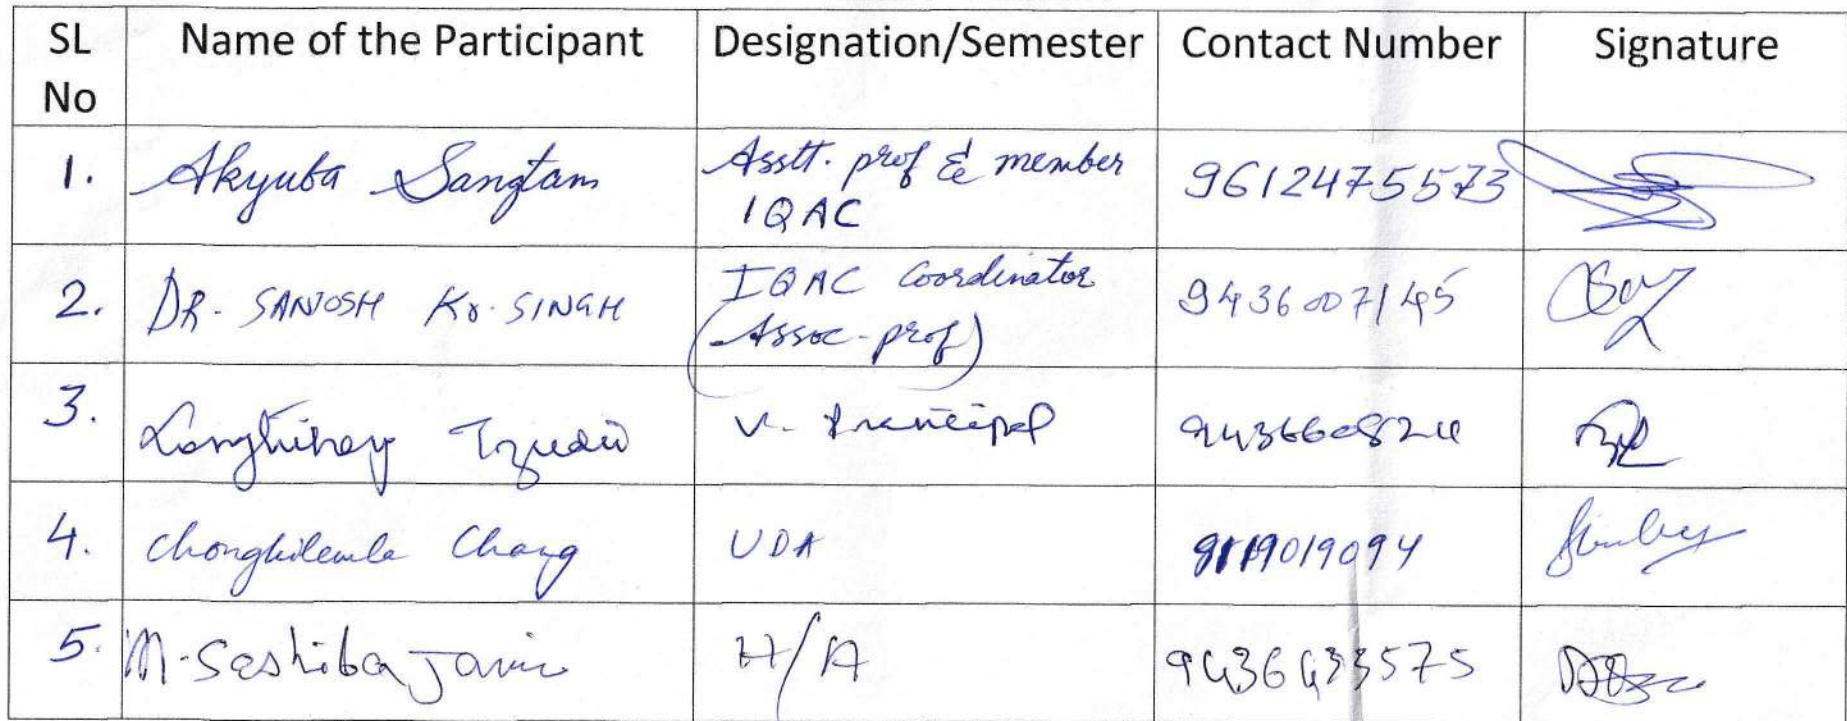 SL No Name of the Participant Designation/Semester Contact Number Signature
1. Akyuba Sangtam Asstt. prof & member IQAC 9612475573
2. DR. SANTOSH Kr. SINGH IQAC Coordinator (Assoc-prof) 9436007145
3. V. Principal
4. Chongkilemla Chang UDA 9019094
5. M. Sashiba Jamir H/A 9436433575